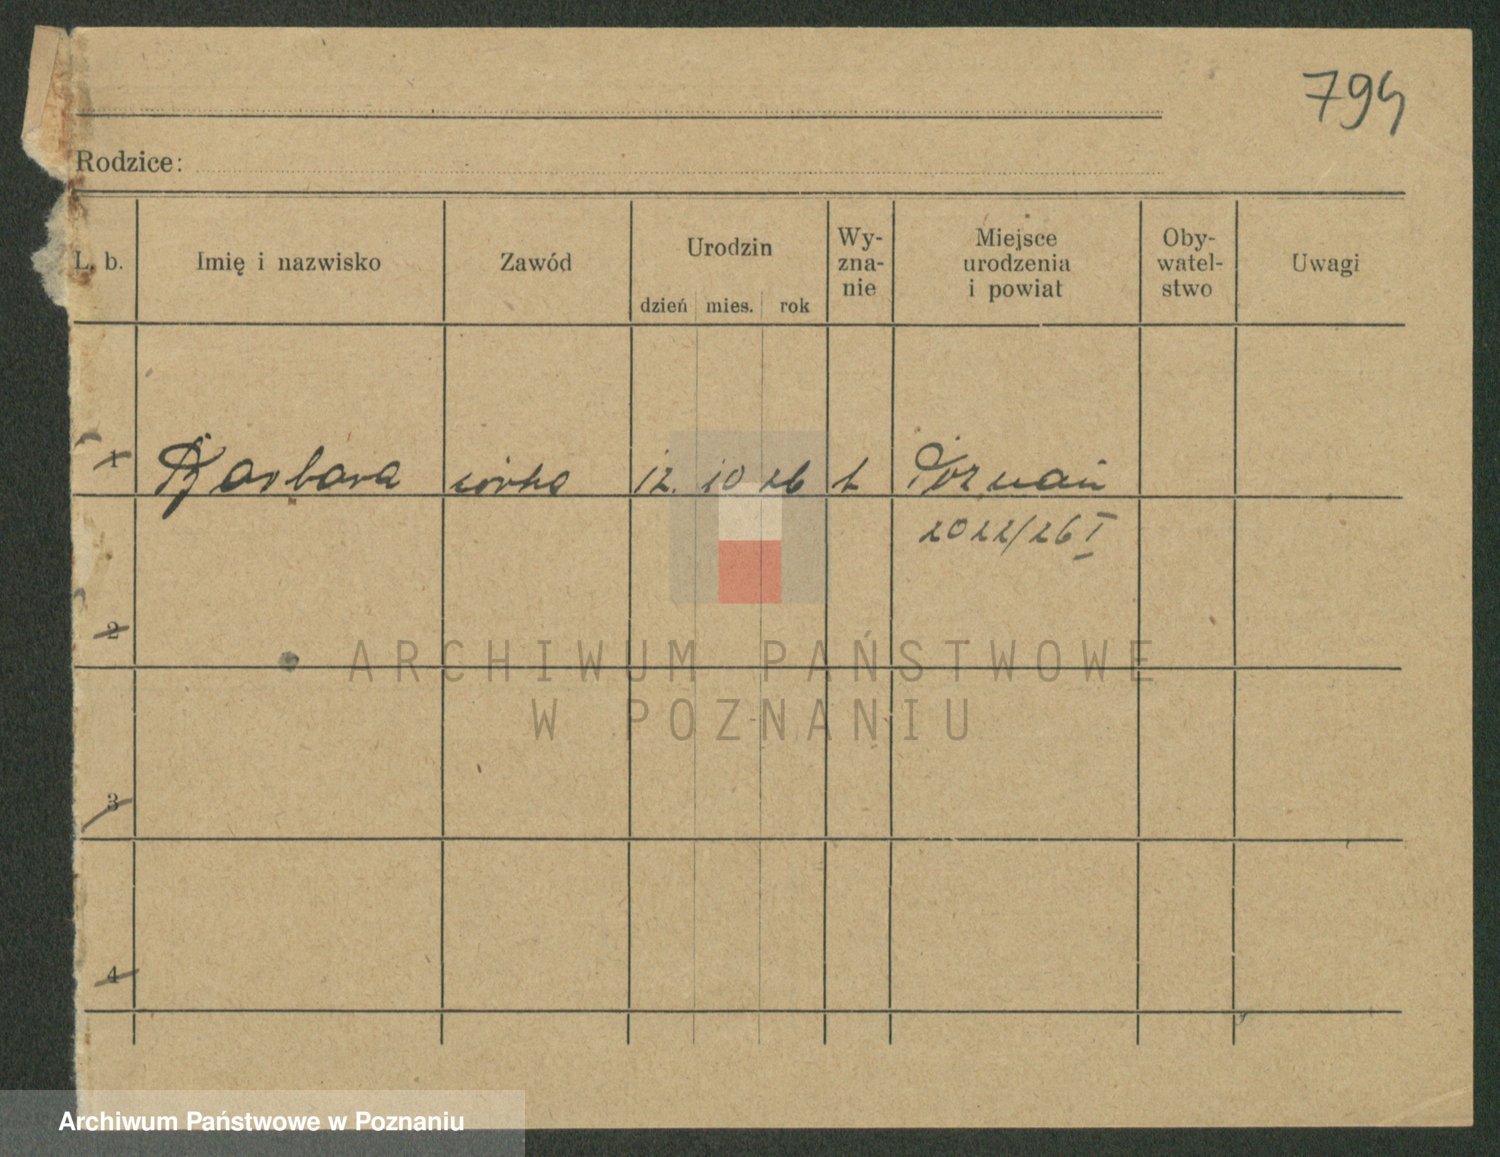 794
Rodzice:
L. b. Imię i nazwisko Zawód Urodzin Wy-zna-nie Miejsce urodzenia i powiat Oby-watel-stwo Uwagi
dzień mies. rok
1 Barbara córka 12. 10 26 Poznań
2022/26 I
2
3
4
ARCHIWUM PAŃSTWOWE
W POZNANIU
Archiwum Państwowe w Poznaniu